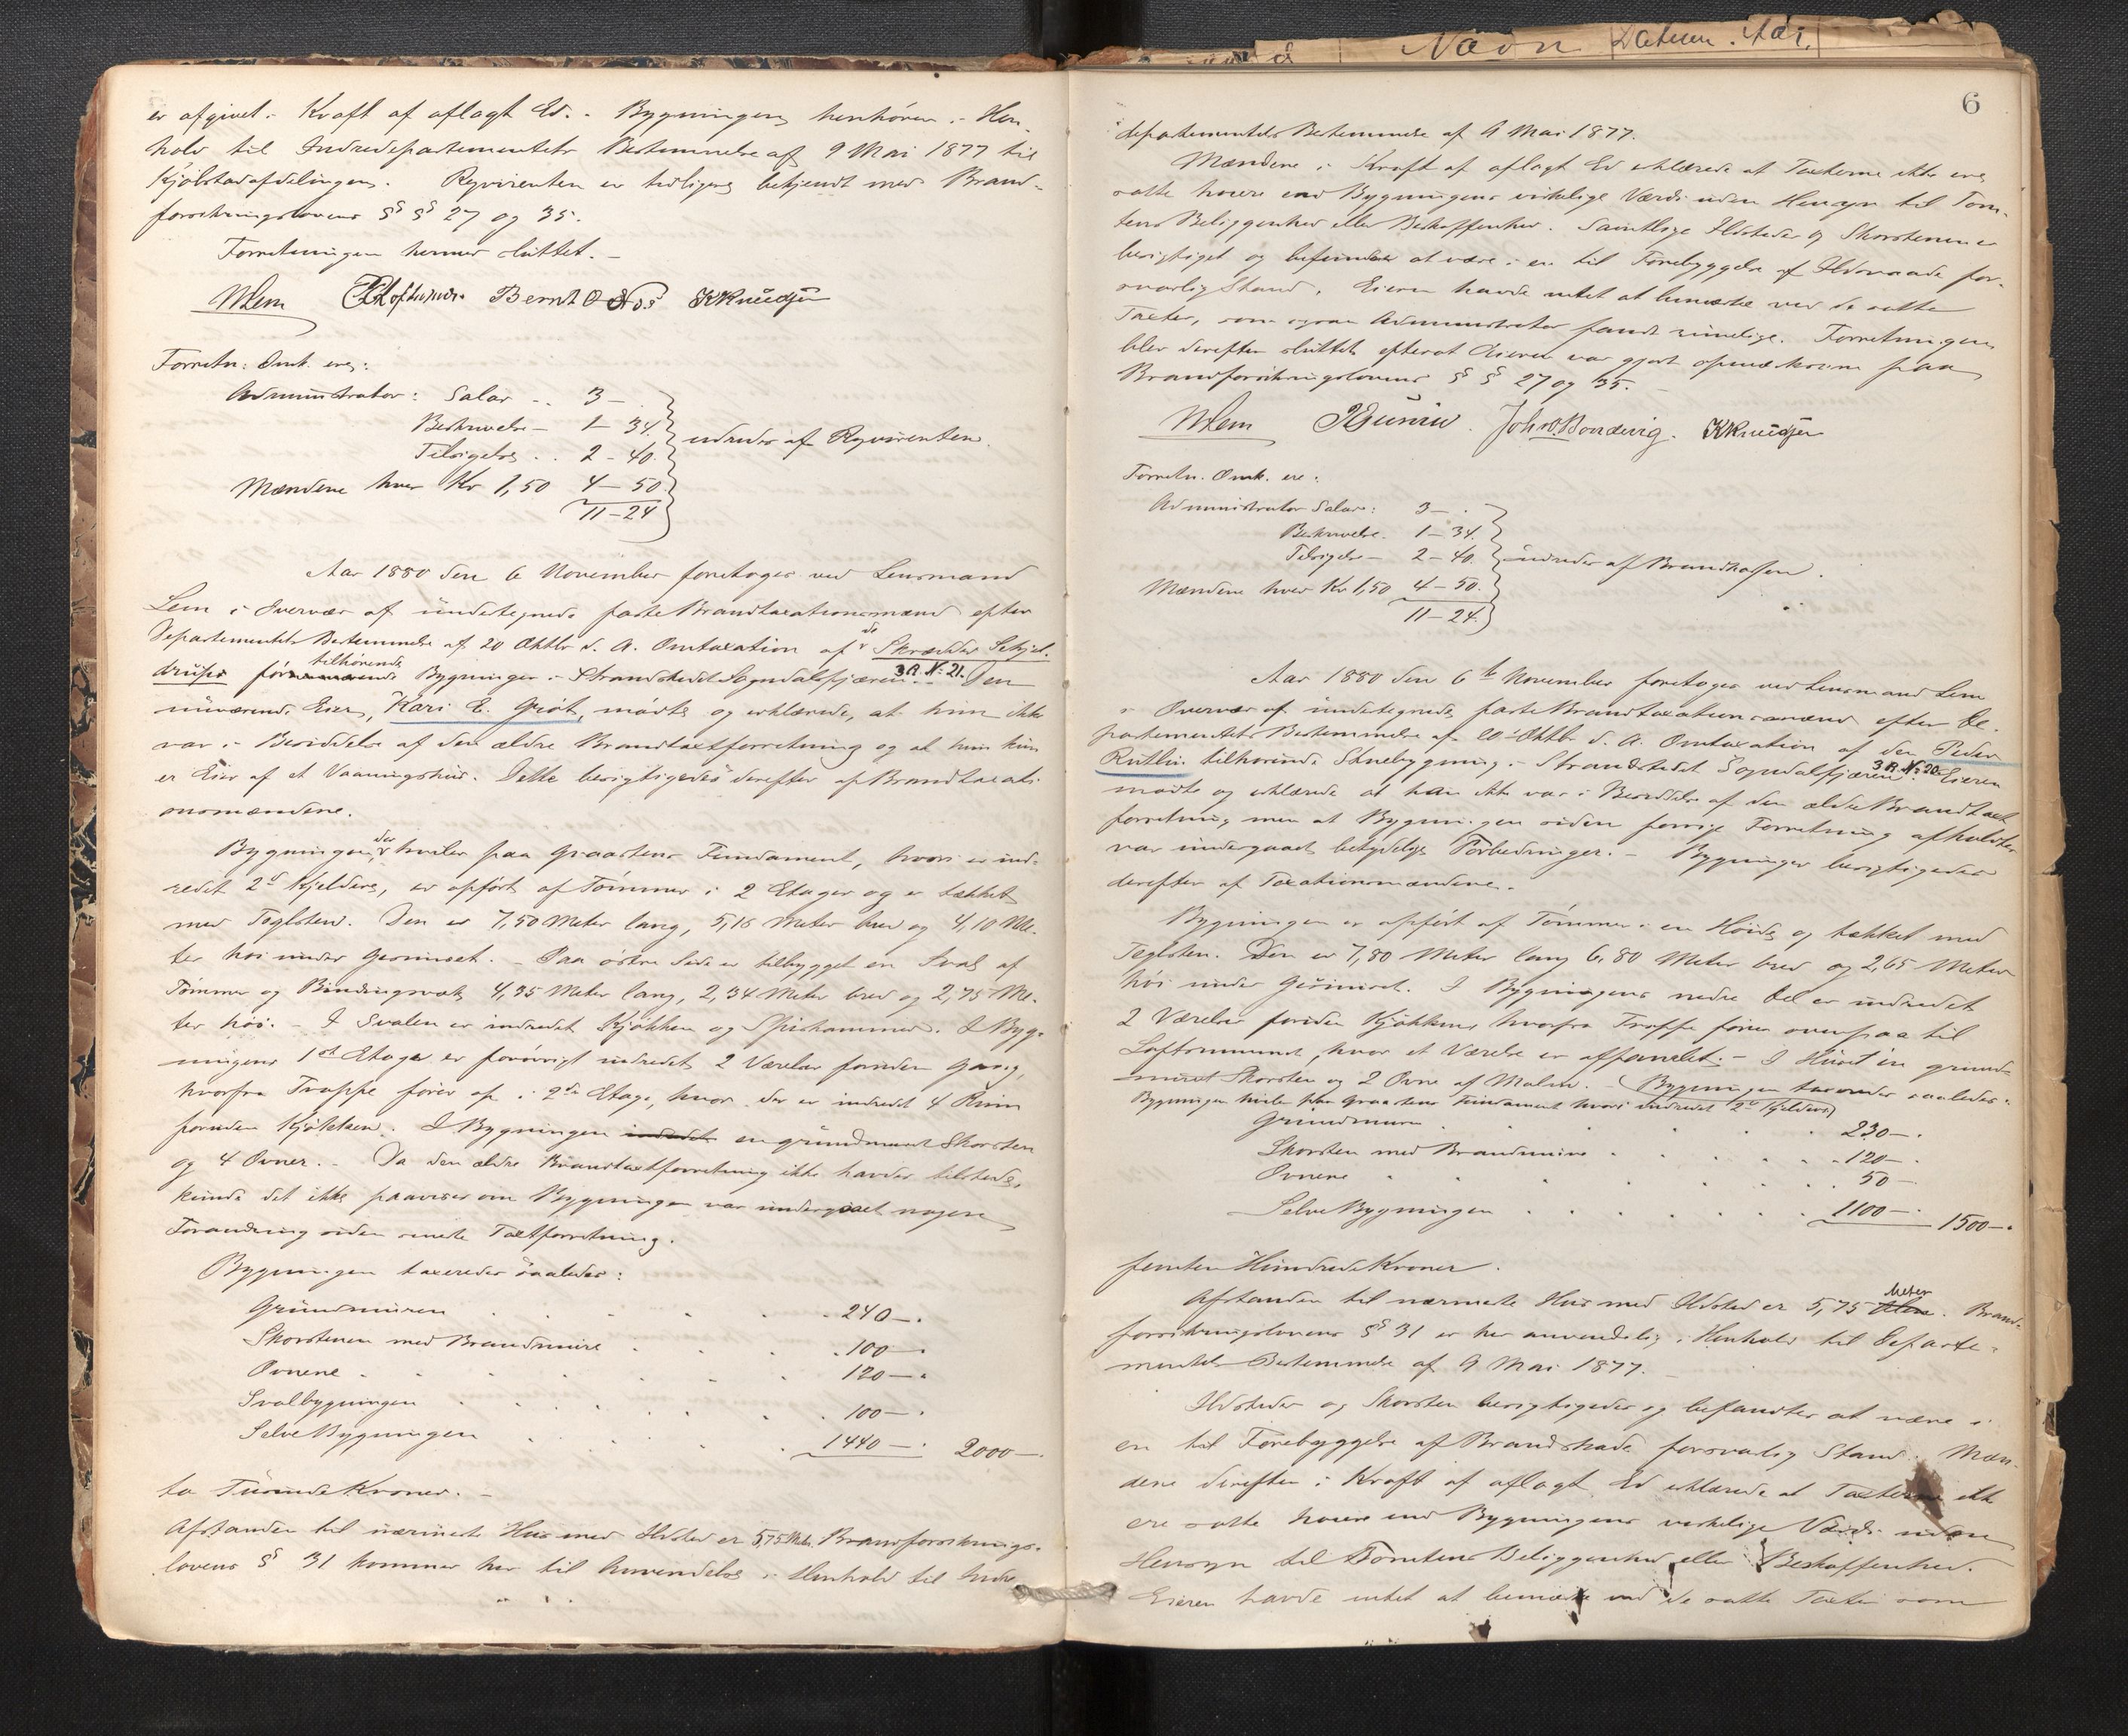 er afgivet i Kraft af aflagt Ed. - Bygningen henhører i Hen-
hold til Indredepartementets Bestemmelse af 9 Mai 1877 til
Kjøbstadafdelingen. Rqvirenten er tidligere bekjendt med Brand-
forsikringslovens §§ 27 og 35.
Forretningen hermed sluttet. -
MLem Bernt O Nes KKnudsen
Forretn: Omk. ere:
Administrator: Salær .. 3 -
Beskrivelse - 1 - 34.
Tilsigelse .. 2 - 40.
udredes af Rqvirenten.
Mændene hver Kr 1,50 4 - 50.
11 - 24
Aar 1880 den 6 November foretoges ved Lensmand
Lem i Overvær af undertegnede faste Brandtaxationsmænd efter
Departementets Bestemmelse af 20 Oktbr d. A. Omtaxation af de Skrædder Schjel-
drups tilhørende Bygninger i Strandstedet Sogndalsfjæren. 3 R. No: 21. Den
nuværende Eier, Kari E. Grøt, mødte og erklærede, at hun ikke
var i Besiddelse af den ældre Brandtaxtforretning og at hun kun
er Eier af et Vaaningshus. Dette besigtigedes derefter af Brandtaxati-
onsmændene.
Bygningen, der hviler paa Graastens Fundament, hvori er ind-
redet 2de Kjeldere, er opført af Tømmer i 2 Etager og er tækket
med Teglsten. Den er 7,50 Meter lang, 5,16 Meter bred og 4,10 Me-
ter høi under Gesimset. - Paa østre Side er tilbygget en Sval af
Tømmer og Bindingsværk 4,35 Meter lang, 2,34 Meter bred og 2,75 Me-
ter høi. - I Svalen er indredet Kjøkken og Spisekammer. I Byg-
ningens 1ste Etage er forøvrigt indredet 2 Værelser foruden Gang,
hvorfra Trappe fører op i 2den Etage, hvor der er indredet 4 Rum
foruden Kjøkken. I Bygningen indredet en grundmuret Skorsten
og 4 Ovner. - Da den ældre Brandtaxtforretning ikke havdes tilstede,
kunde det ikke paavises om Bygningen var undergaaet nogen
Forandring siden sidste Taxtforretning.
Bygningen taxeredes saaledes:
Grundmuren 240 -
Skorstenen med Brandmure 100 -
Ovnene 120 -
Svalbygningen 100 -
Selve Bygningen 1440 - 2000 -
to Tusinde Kroner. -
Afstanden til nærmeste Hus med Ildsted er 5,75 Met. Brandforsikrings-
lovens § 31 kommer her til Anvendelse i Henhold til Indre
6
departementets Bestemmelse af 9 Mai 1877.
Mændene i Kraft af aflagt Ed erklærede at Taxterne ikke ere
satte høiere end Bygningens virkelige Værdi uden Hensyn til Tom-
tens Beliggenhed eller Beskaffenhed. Samtlige Ildsteder og Skorstenen er
besigtiget og befundet at være i en til Forebyggelse af Ildsvaade for-
svarlig Stand. Eieren havde intet at bemærke ved de satte
Taxter, som ogsaa Administrator fandt rimelige. Forretningen
blev derefter sluttet efterat Eieren var gjort opmærksom paa
Brandforsikringslovens §§ 27 og 35. -
MLem Joh. O. Bondevig. KKnudsen
Forretn. Omk. ere:
Administrator Salær: 3 -
Beskrivelse. 1 - 34.
Tilsigelse - 2 - 40.
udredes af Brandkassen.
Mændene hver Kr 1,50 4 - 50.
11 - 24.
Aar 1880 den 6te November foretoges ved Lensmand Lem
i Overvær af undertegnede faste Brandtaxationsmænd efter De-
partementets Bestemmelse af 20 Oktbr d. A. Omtaxation af den Peder
Rutlin tilhørende Stuebygning i Strandstedet Sogndalsfjæren. 3 R. No: 20. Eieren
mødte og erklærede at han ikke var i Besiddelse af den ældre Brandtaxt
forretning, men at Bygningen siden forrige Forretning afholdtes
var undergaaet betydelige Forbedringer. - Bygningen besigtigedes
derefter af Taxationsmændene.
Bygningen er opført af Tømmer i en Høide og tækket med
Teglsten. Den er 7,80 Meter lang 6,80 Meter bred og 2,65 Meter
høi under Gesimset. I Bygningens nedre Del er indredet
2 Værelser foruden Kjøkken hvorfra Trappe fører ovenpaa til
Loftsrummet, hvor et Værelse er afpanelet. - I Huset en grund-
muret Skorsten og 2 Ovne af Malm. - Bygningen taxeredes saaledes:
Bygningen hviler paa Graastens Fundament hvori indredet 2de Kjeldere)
Grundmuren 230 -
Skorsten med Brandmure 120 -
Ovnene 50 -
Selve Bygningen 1100 - 1500 -
femten Hundrede Kroner.
Afstanden til nærmeste Hus med Ildsted er 5,75 Alen Meter. Brand-
forsikringslovens § 31 er her anvendelig i Henhold til Departe-
mentets Bestemmelse af 9 Mai 1877. -
Ildsteder og Skorsten besigtigedes og befandtes at være i
en til Forebyggelse af Brandskade forsvarlig Stand. Mæn-
dene derefter i Kraft af aflagt Ed erklærede at Taxterne ikke
ere satte høiere end Bygningens virkelige Værdi uden
Hensyn til Tomtens Beliggenhed eller Beskaffenhed.
Eieren havde intet at bemærke ved de satte Taxter som
Navn Datum. Aar.